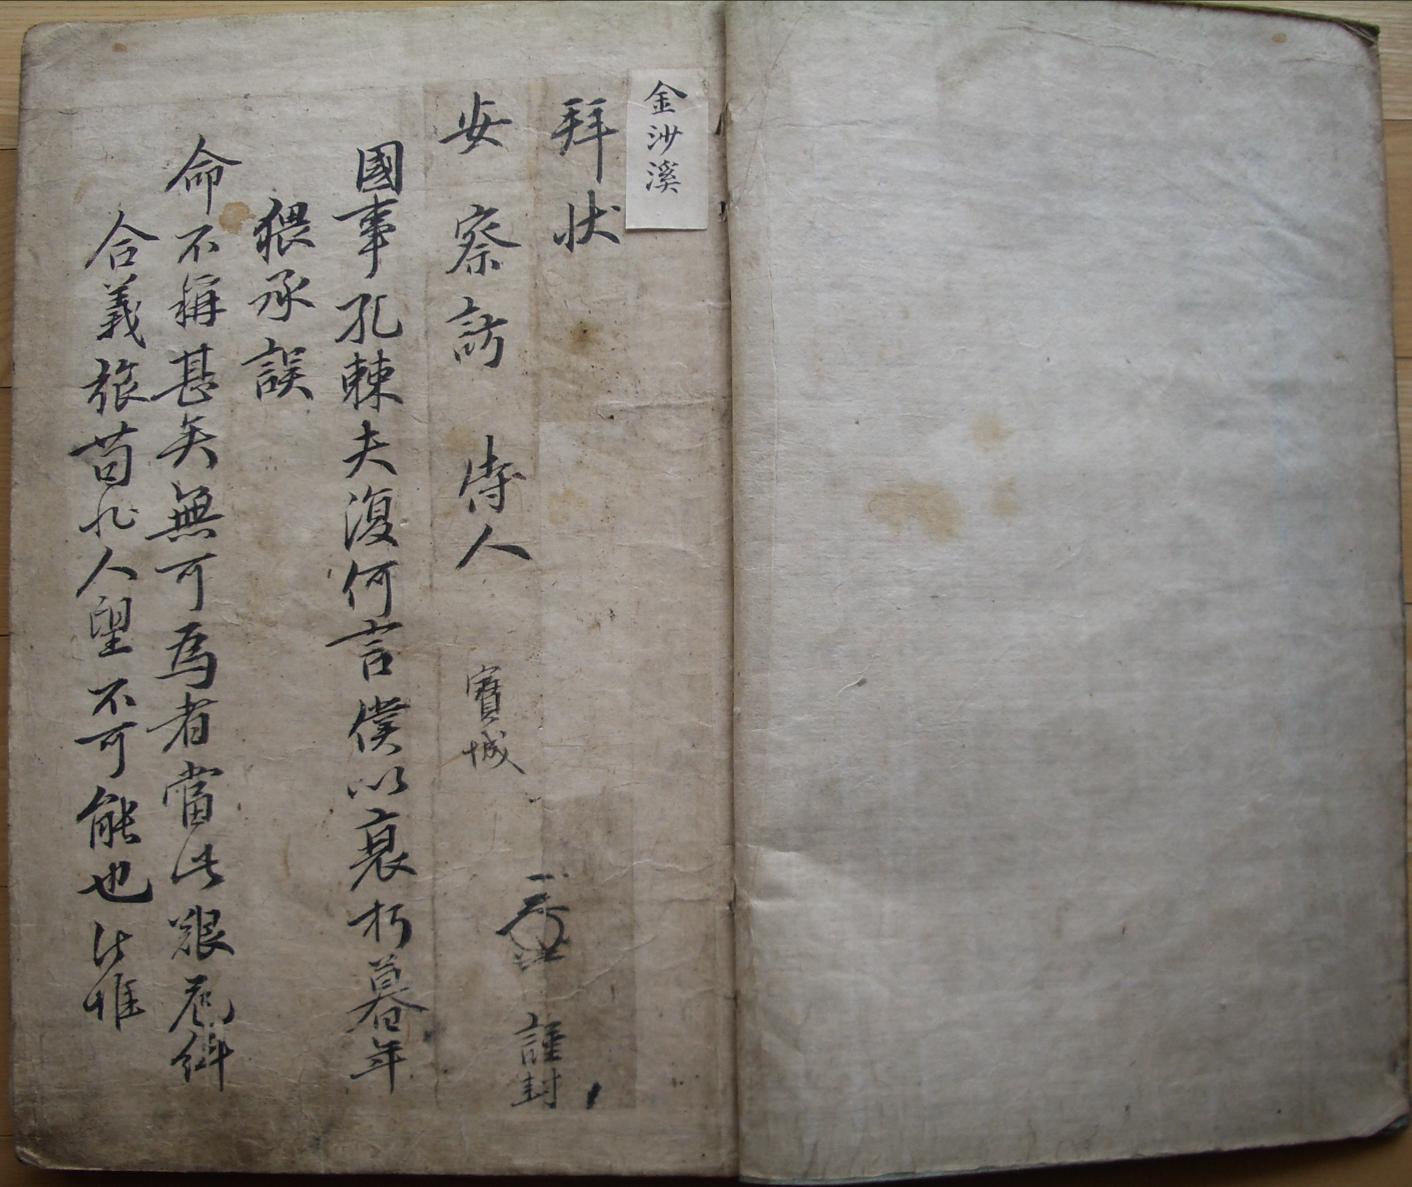 金沙溪
拜狀
安察訪 侍人
寶城
謹封
國事孔棘夫復何言僕以衰朽暮年
猥承誤
命不稱甚矣無可爲者當此艱危糾
合義旅苟非人望不可能也以惟